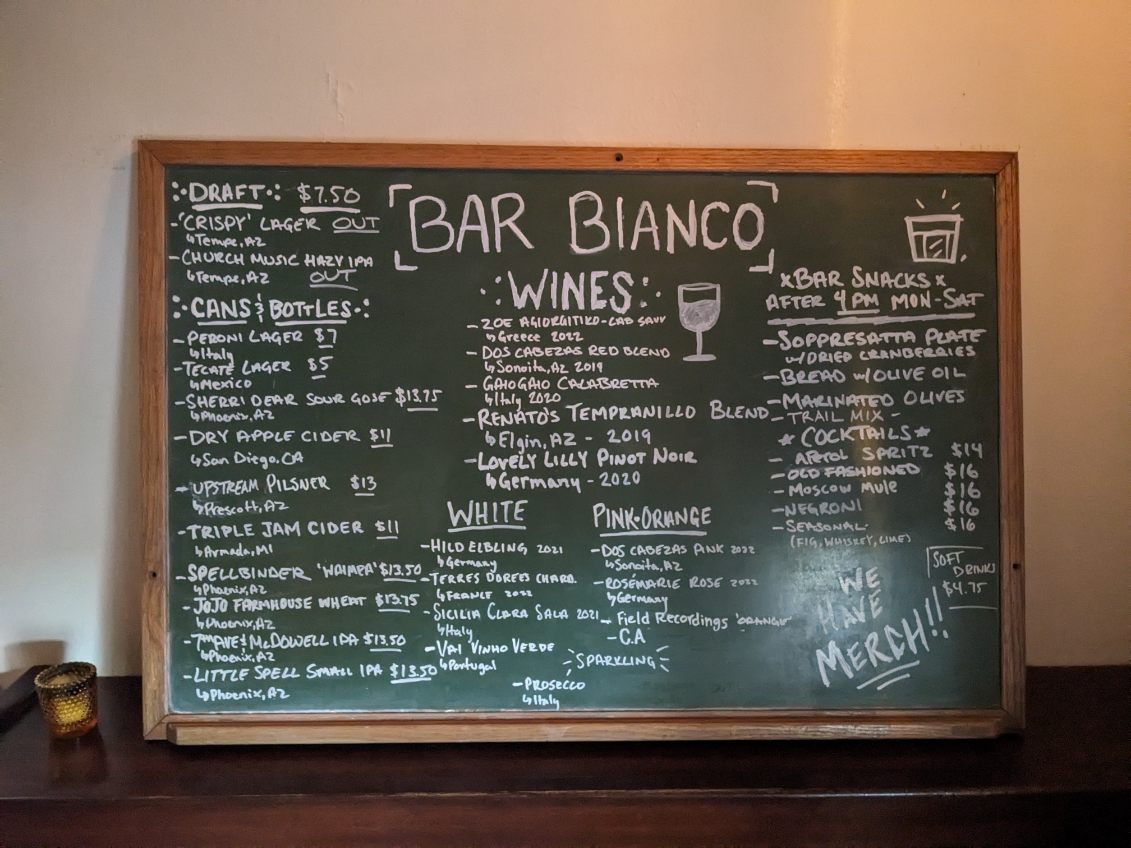 DRAFT $7.50
-'CRISPY' LAGER OUT
↳Tempe, AZ
-CHURCH MUSIC HAZY IPA
↳Tempe, AZ OUT
CANS & BOTTLES
-PERONI LAGER $7
↳Italy
-TECATE LAGER $5
↳Mexico
-SHERRI DEAR SOUR GOSE $13.75
↳Phoenix, AZ
-DRY APPLE CIDER $11
↳San Diego, CA
-UPSTREAM PILSNER $13
↳Prescott, AZ
-TRIPLE JAM CIDER $11
↳Armada, MI
-SPELLBINDER 'WAIMEA' $13.50
↳Phoenix, AZ
-JOJO FARMHOUSE WHEAT $13.75
↳Phoenix, AZ
-7th AVE & McDOWELL IPA $13.50
↳Phoenix, AZ
-LITTLE SPELL SMALL IPA $13.50
↳Phoenix, AZ
BAR BIANCO
WINES
-ZOE AGIORGITIKO-CAB SAUV
↳Greece 2022
-DOS CABEZAS RED BLEND
↳Sonoita, AZ 2019
-GAIOGAIO CALABRETTA
↳Italy 2020
-RENATO'S TEMPRANILLO BLEND
↳Elgin, AZ - 2019
-LOVELY LILLY PINOT NOIR
↳Germany - 2020
WHITE
-HILD ELBLING 2021
↳Germany
-TERRES DOREES CHARD.
↳FRANCE 2022
-SICILIA CLARA SALA 2021
↳Italy
-VAI VINHO VERDE
↳Portugal
PINK•ORANGE
-DOS CABEZAS PINK 2022
↳Sonoita, AZ
-ROSÉMARIE ROSE 2022
↳Germany
-Field Recordings 'ORANGE'
-C.A
SPARKLING
-PROSECCO
↳Italy
xBAR SNACKSx
AFTER 4PM MON-SAT
-SOPPRESATTA PLATE
w/DRIED CRANBERRIES
-BREAD w/OLIVE OIL
-MARINATED OLIVES
-TRAIL MIX-
★COCKTAILS★
-APEROL SPRITZ $14
-OLD FASHIONED $16
-MOSCOW MULE $16
-NEGRONI $16
-SEASONAL $16
(FIG, WHISKEY, LIME)
SOFT
DRINKS
$4.75
WE
HAVE
MERCH!!